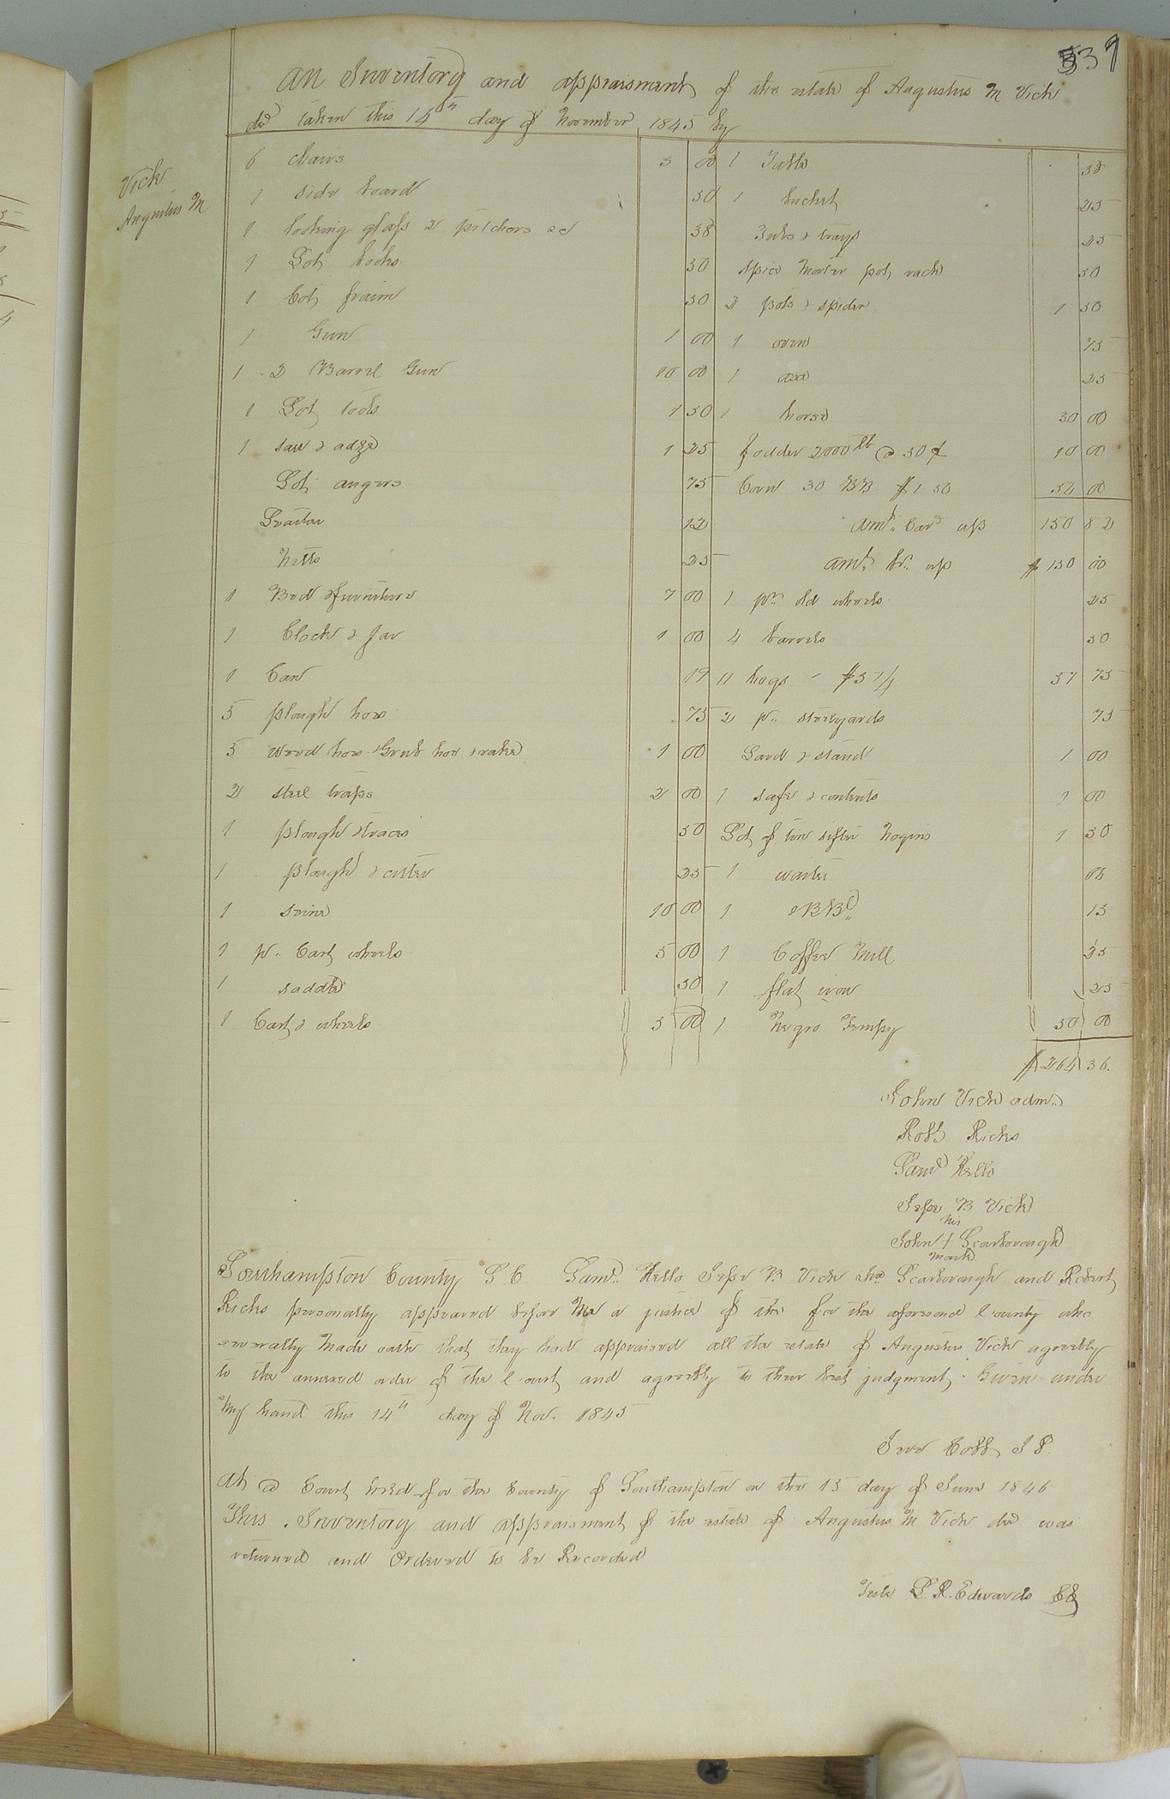 339
An Inventory and appraisment of the estate of Augustus M Vick
decd taken this 14th day of November 1845 by
Vick
Augustus M
6 chairs 3 00
1 side board 50
1 looking glass & pitchers &c 38
1 Lot books 50
1 Cot fraim 50
1 Gun 1 00
1 2 Barrel Gun 10 00
1 Lot tools 1 50
1 saw & adze 1 25
Lot augers 75
12
25
1 Bed & furniture 7 00
1 Clock & Jar 1 00
1 Can 19
5 plough hoes 75
5 weed hoes Grub hoe & rake 1 00
2 steel traps 2 00
1 plough & traces 50
1 plough & cutter 25
1 10 00
1 pr. Cart wheels 5 00
1 saddle 50
1 Cart & wheels 5 00
1 Table 38
1 bucket 25
Tubs & trays 25
spice morter pot rack 50
2 pots & spider 1 50
1 oven 75
1 axe 25
1 horse 30 00
fodder 2000 lb @ 50 ¢ 10 00
Corn 30 BB $1 80 54 00
amt. Card up 150 82
amt. br. up $ 150 00
1 pr. old wheels 25
4 barrels 50
11 hogs $5 1/4 57 75
2 pr. steelyards 75
Lard & stand 1 00
1 safe & contents 1 00
Lot of tin sifter Nogins 1 50
1 waiter 06
1 15
1 Coffee Mill 25
1 flat iron 25
1 Negro Tempy 50 00
$264 36.
John Vick adm.
Robt. Ricks
Saml Kello
Jesse B Vick
his
John + Scarborough
mark
Southampton County S C. Saml. Kello Jesse B Vick Jno Scarborough and Robert
Ricks personally appeared before Me a justice of the for the aforesaid County who
severally made oath that they had appraised all the estate of Augustus Vick agreebly
to the annexed order of the Court and agreebly to their best judgment. Given under
My hand this 14th day of Nov. 1845
Cobb J P.
At a Court held for the County of Southampton on the 15 day of June 1846
This Inventory and appraisment of the estate of Augustus M Vick decd was
returned and Ordered to be Recorded
Teste L. R. Edwards CC